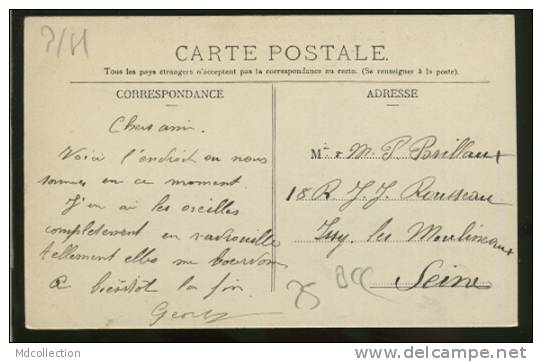 CARTE POSTALE.
Tous les pays étrangers n'acceptent pas la correspondance au recto. (Se renseigner à la poste).
CORRESPONDANCE
ADRESSE
Chers amis.
Voici l'endroit ou nous
sommes en ce moment.
J'en ai les oreilles
complètement en vadrouille
tellement elles me bourdon
à bientôt la fin
Georges
M. P. Brillaux
18 R J.J. Rousseau
Issy les Moulineaux
Seine
Mdcollection
http://www.delcampe.net